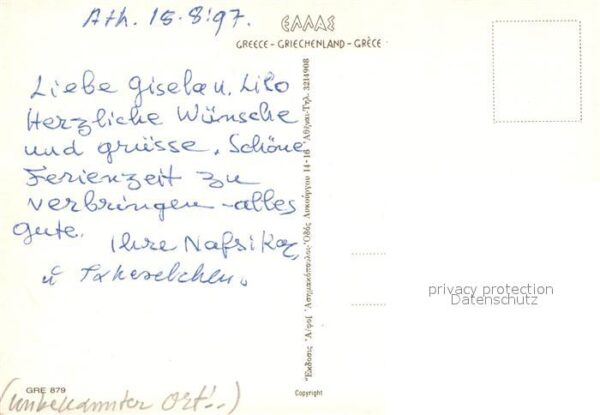 Ath. 15.8.97.
ΕΛΛΑΣ
GREECE - GRIECHENLAND - GRÈCE
Liebe Gisela u. Lilo
Herzliche Wünsche
und grüsse, Schöne
Ferienzeit zu
verbringen - alles
gute.
Ihre Nafsika,
u
Ἔκδοσις Ἀφοί Ἀσημακόπουλος Ὁδός Λυκούργου 14-16 Ἀθῆναι-Τηλ. 3214908
privacy protection
Datenschutz
GRE 879
Copyright
(unbekannter Ort...)